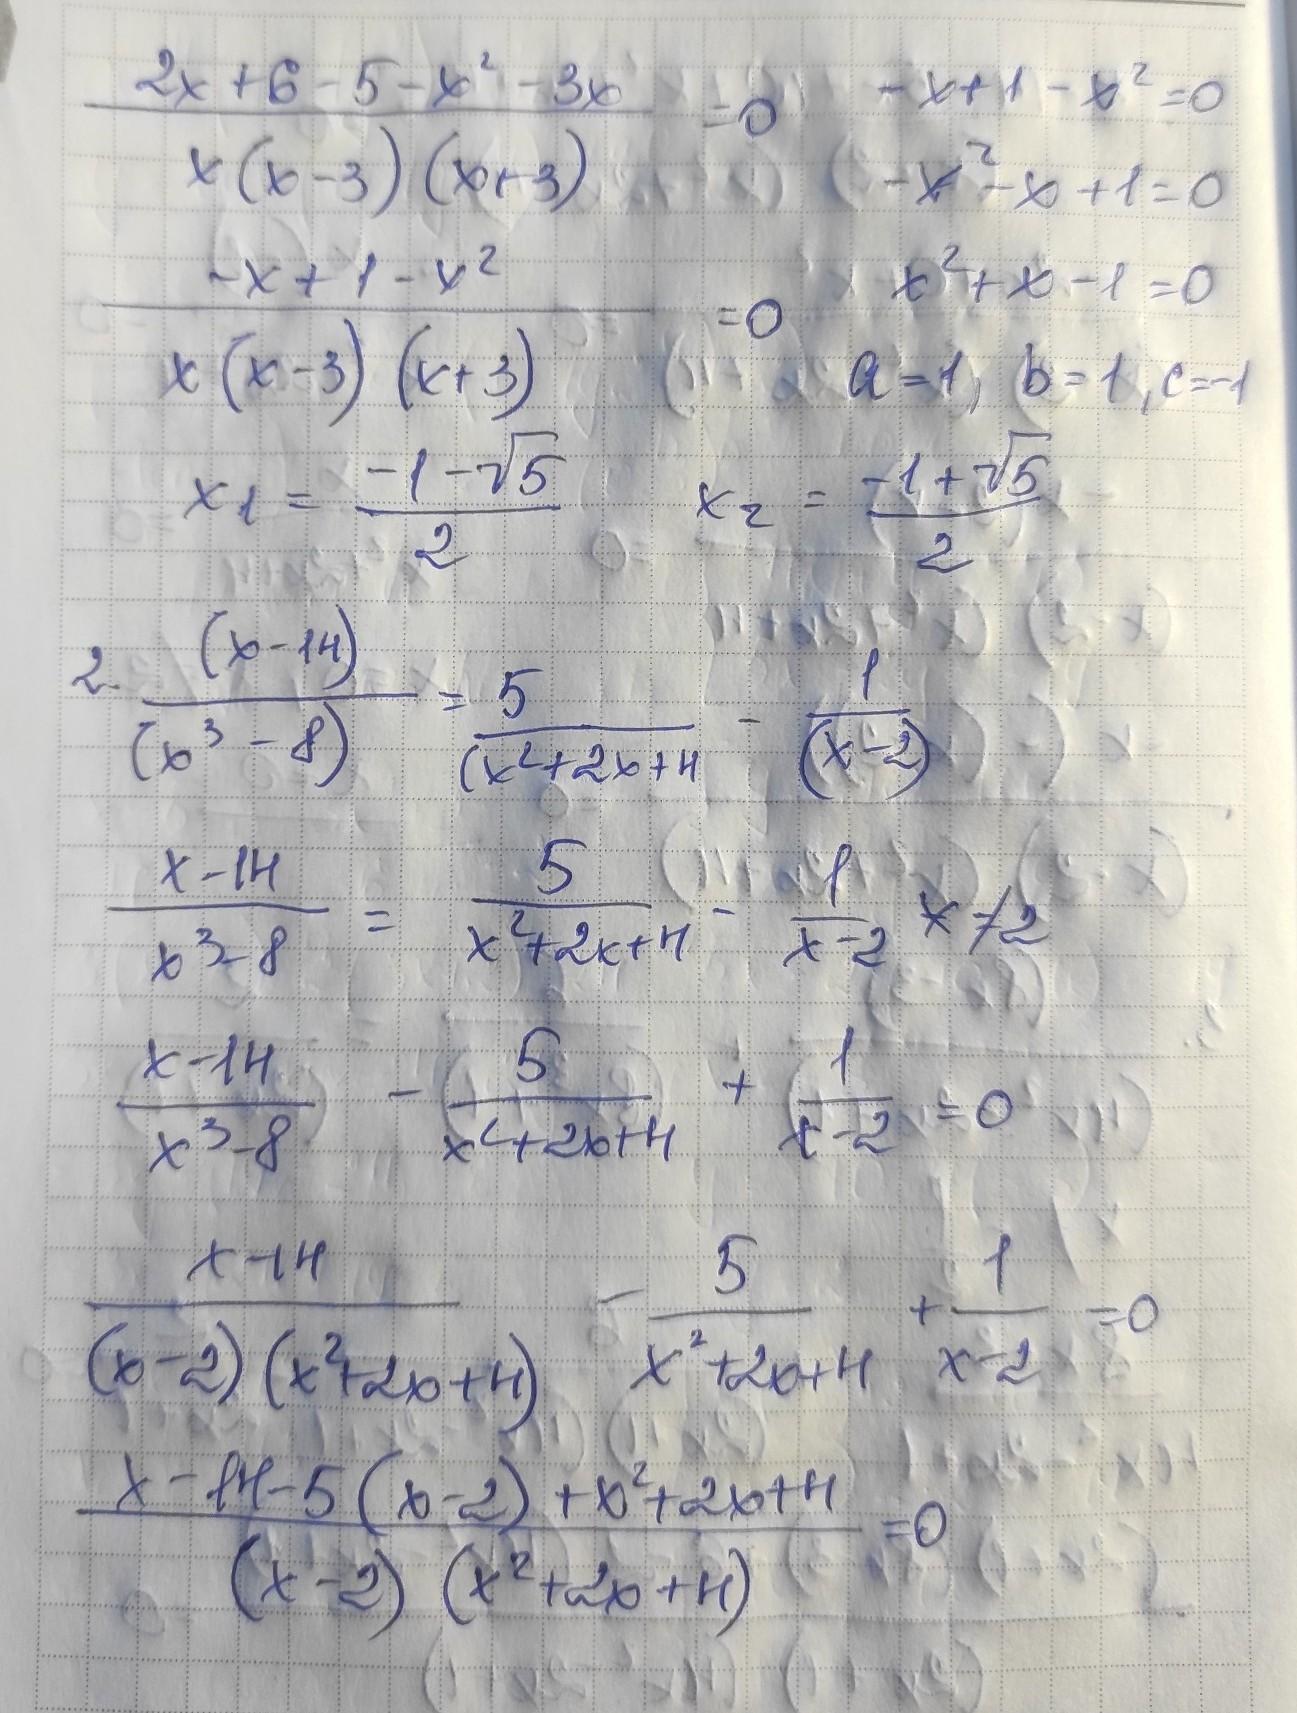 2x + 6 - 5 - x² - 3x / x(x-3)(x+3) = 0    -x+1-x²=0
-x²-x+1=0
-x+1-x² / x(x-3)(x+3) = 0    x²+x-1=0
a=1, b=1, c=-1
x1 = -1-√5 / 2    x2 = -1+√5 / 2
2. (x-14) / (x³-8) = 5 / (x²+2x+4 - 1 / (x-2)
x-14 / x³-8 = 5 / x²+2x+4 - 1 / x-2  x≠2
x-14 / x³-8 - 5 / x²+2x+4 + 1 / x-2 = 0
x-14 / (x-2)(x²+2x+4) - 5 / x²+2x+4 + 1 / x-2 = 0
x-14-5(x-2)+x²+2x+4 / (x-2)(x²+2x+4) = 0